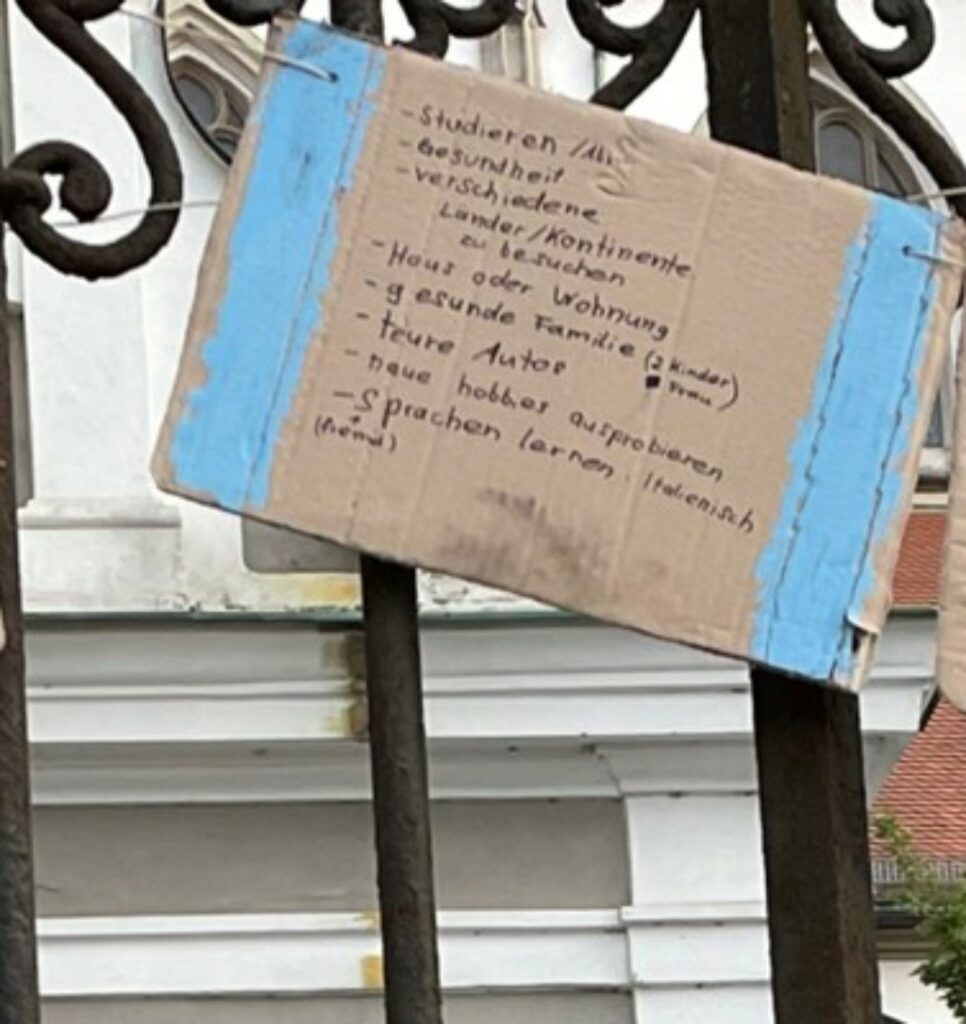 - Studieren
- Gesundheit
- verschiedene
Länder/Kontinente
zu besuchen
- Haus oder Wohnung
- gesunde Familie (2 Kinder)
Frau
- teure Autos
- neue hobbies ausprobieren
- Sprachen lernen, Italienisch
(fremd)